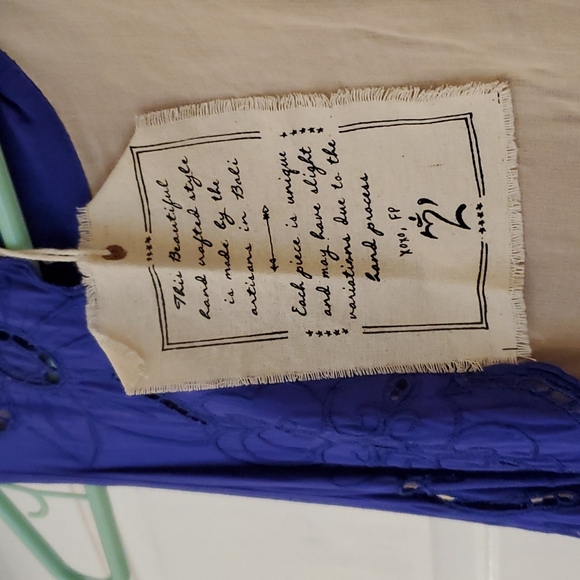 This Beautiful
hand crafted style
is made by the
artisans in Bali
Each piece is unique
and may have slight
variations due to the
hand process
xoxo, FP